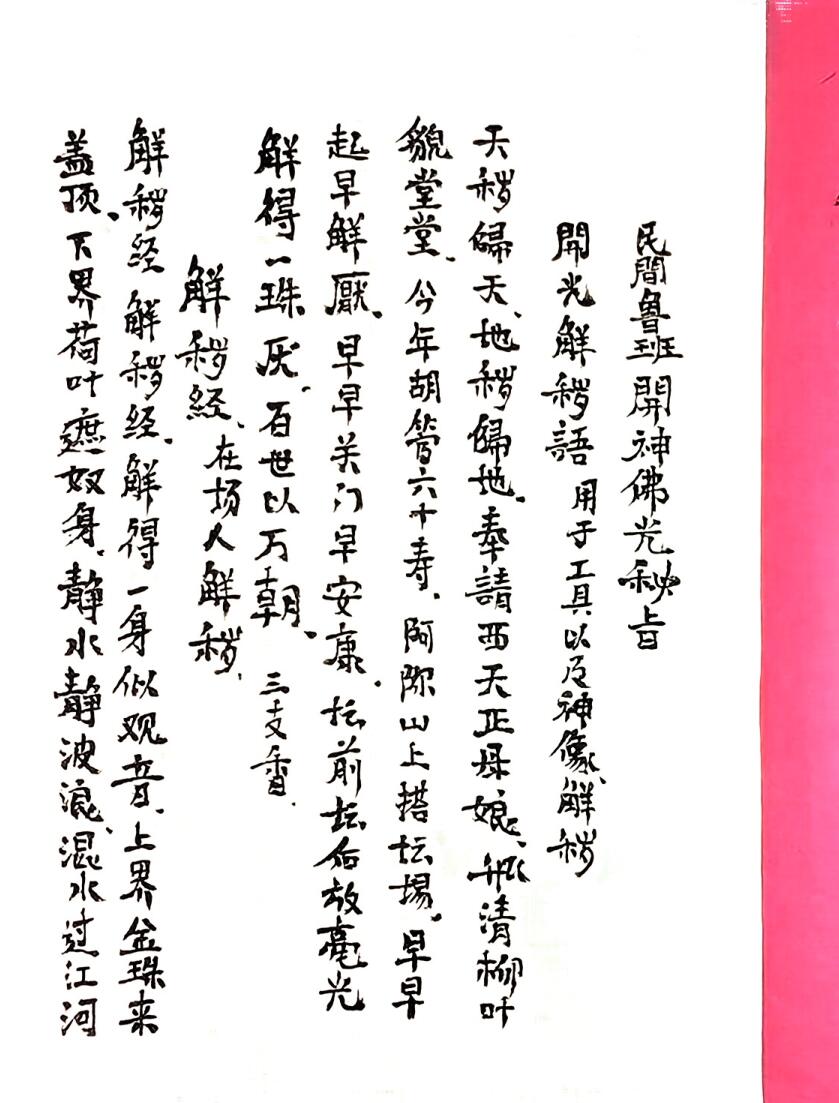 民間魯班開神佛光秘旨
開光解秽語 用于工具以及神像、解秽
天秽歸天、地秽歸地、奉請西天正母娘、清柳叶
貌堂堂、今年胡六十寿、阿弥山上搭坛場、早早
起早解厭、早早关门早安康、坛前坛后放毫光
解得一珠厌、百世以万朝、三支香、
解秽经、在场人解秽、
解秽经 解秽经、解得一身似观音、上界金珠来
盖顶、下界荷叶遮奴身、静水静波浪、混水过江河